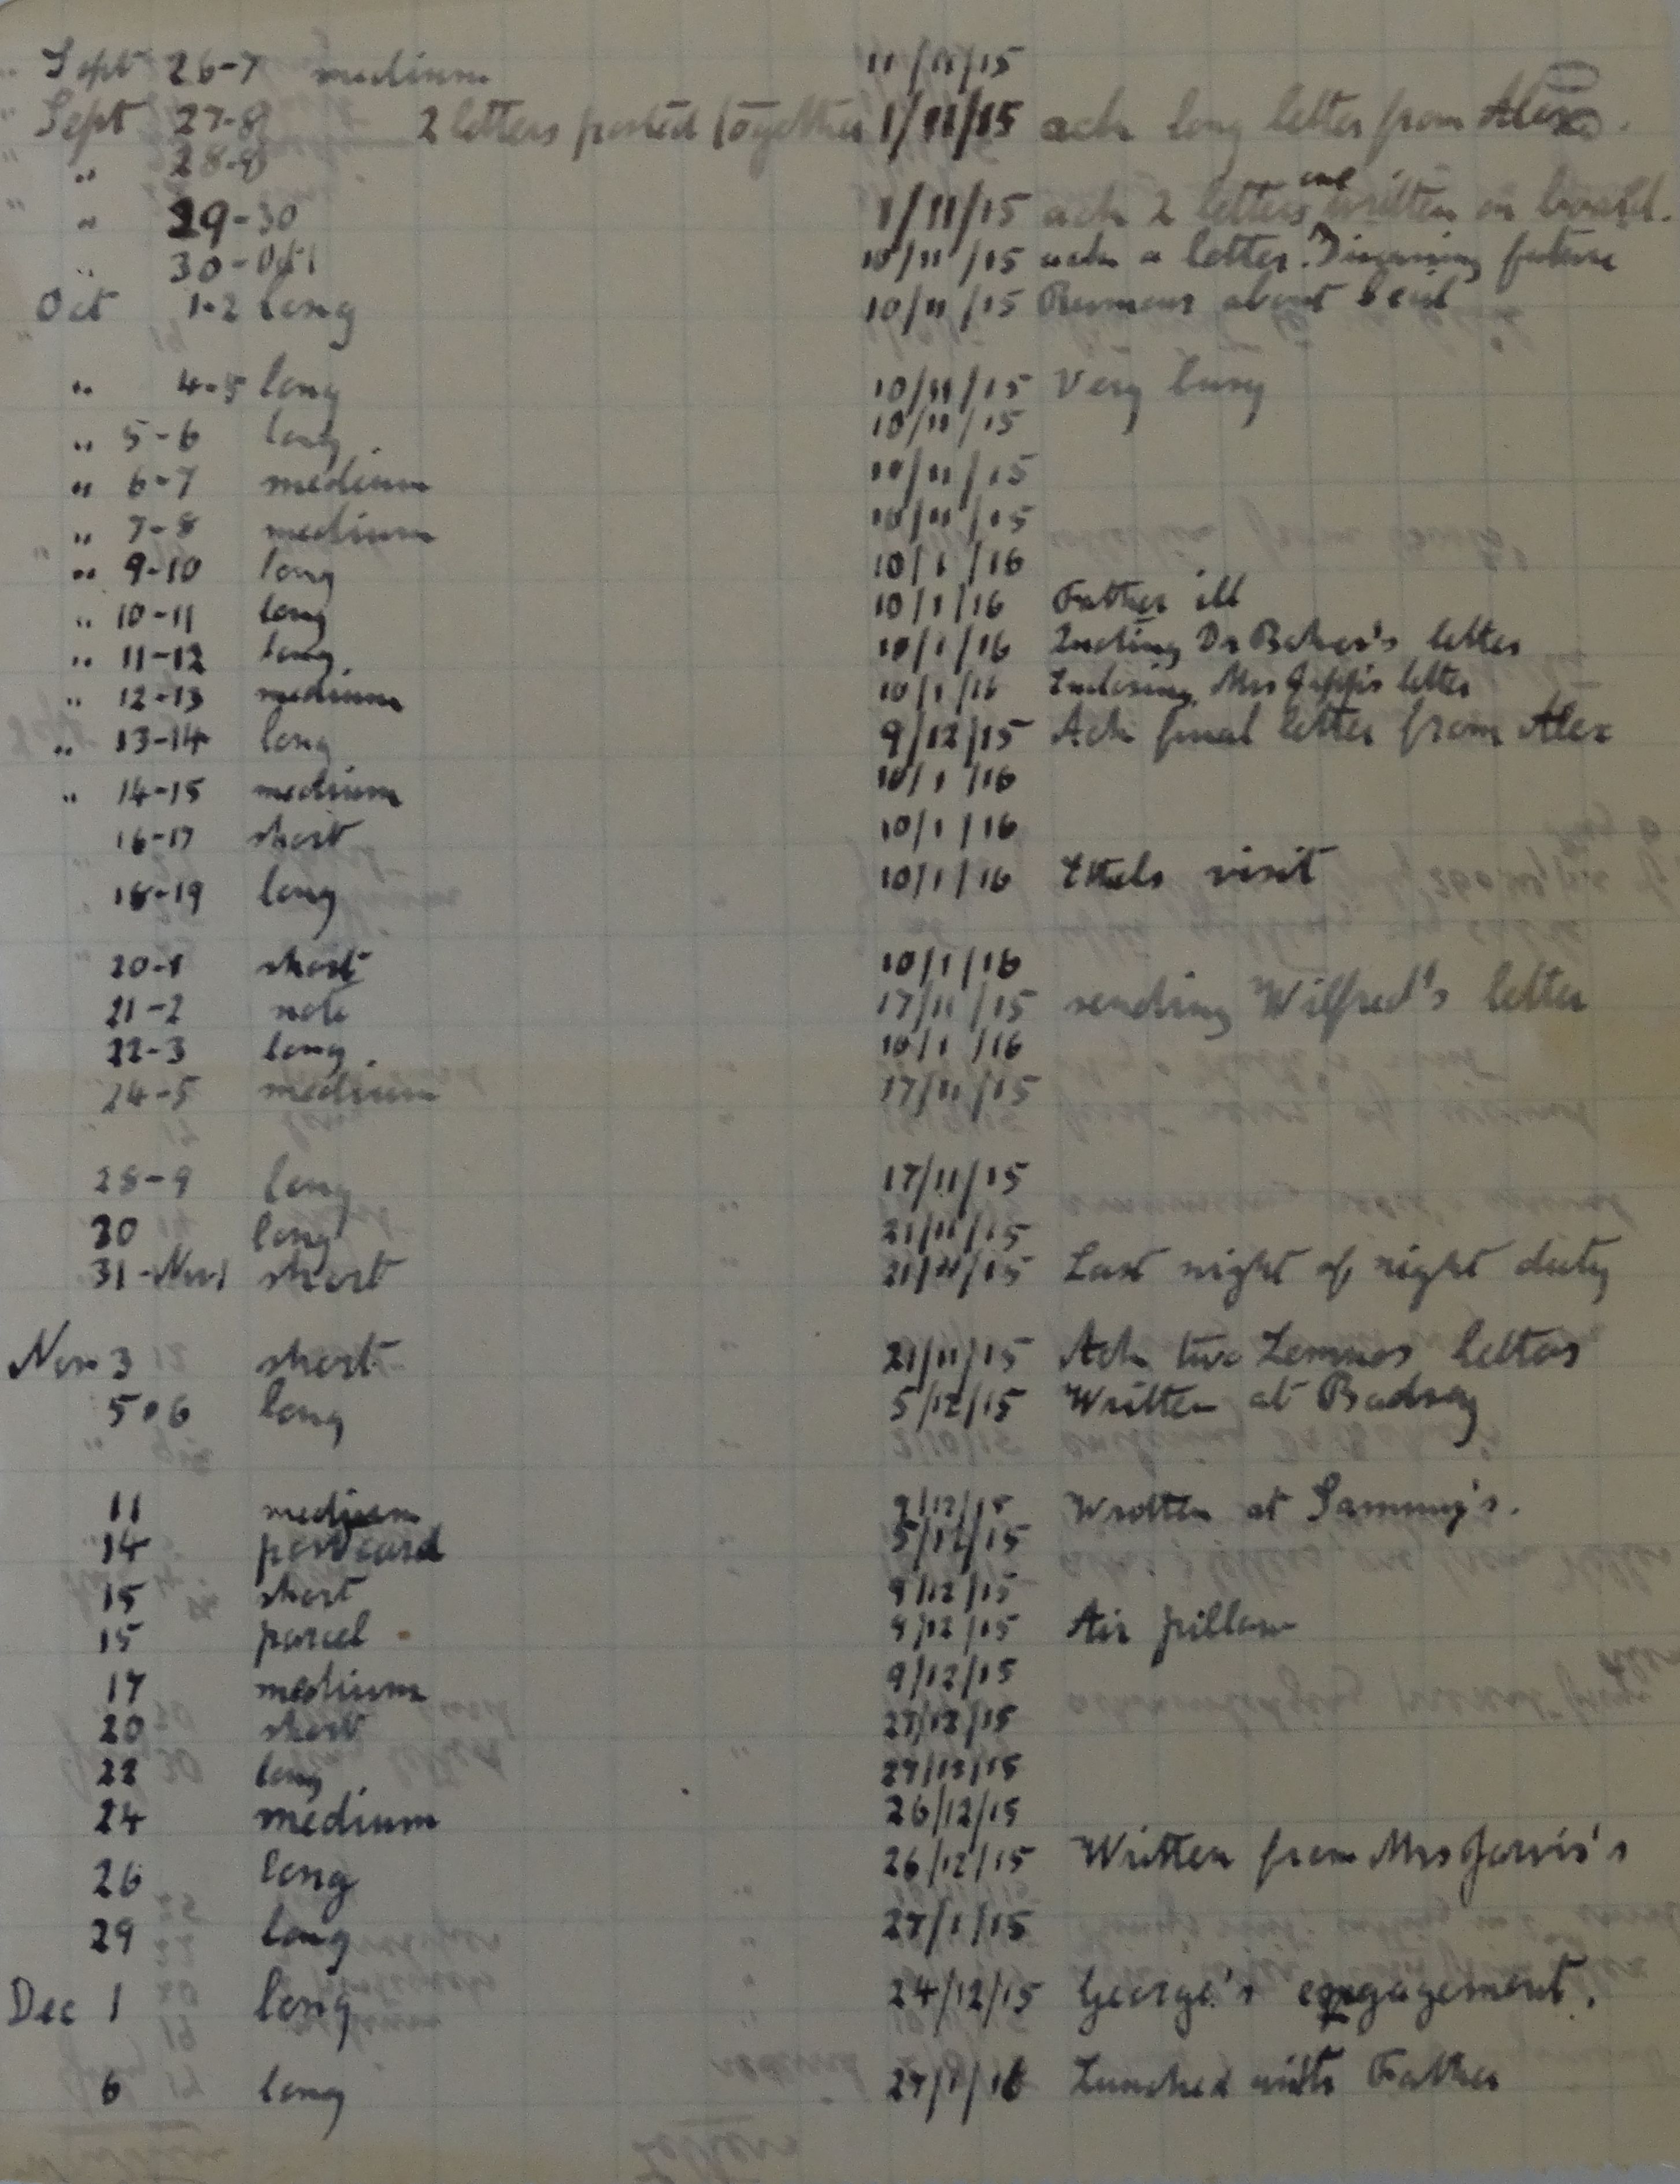 Sept 26-7 medium 11/11/15
Sept 27-8 2 letters posted together 1/11/15 ack long letter from Alex.
" 28-9
" 29-30 1/11/15 ack 2 letters one written on board.
" 30-Oct 1 10/11/15 ack a letter. Discussing future
Oct 1-2 long 10/11/15 Rumours about
" 4-5 long 10/11/15 Very busy
" 5-6 long 10/11/15
" 6-7 medium 10/11/15
" 7-8 medium 10/11/15
" 9-10 long 10/1/16
" 10-11 long 10/1/16 Father ill
" 11-12 long. 10/1/16 Dr Baker's letter
" 12-13 medium 10/1/16 Enclosing Mrs Jepp's letter
" 13-14 long 9/12/15 Ack final letter from Alex
" 14-15 medium 10/1/16
16-17 short 10/1/16
18-19 long 10/1/16 Ethels visit
20-1 short 10/1/16
21-2 note 17/11/15 sending Wilfred's letter
22-3 long. 10/1/16
24-5 medium 17/11/15
28-9 long 17/11/15
30 long 21/11/15
31-Nov 1 short 21/11/15 Last night of night duty
Nov 3 short 21/11/15 Ack two Lemnos letters
5 & 6 long 5/12/15 Written at Badsey
11 medium 9/12/15 Written at Sammy's.
14 postcard 5/12/15
15 short 9/12/15
15 parcel 9/12/15 Air pillow
17 medium 9/12/15
20 short 27/12/15
22 long. 27/12/15
24 medium 26/12/15
26 long 26/12/15 Written from Mrs Jarvis's
29 long 27/1/15
Dec 1 long 24/12/15 George's engagement.
6 long 27/1/16 Lunched with Father